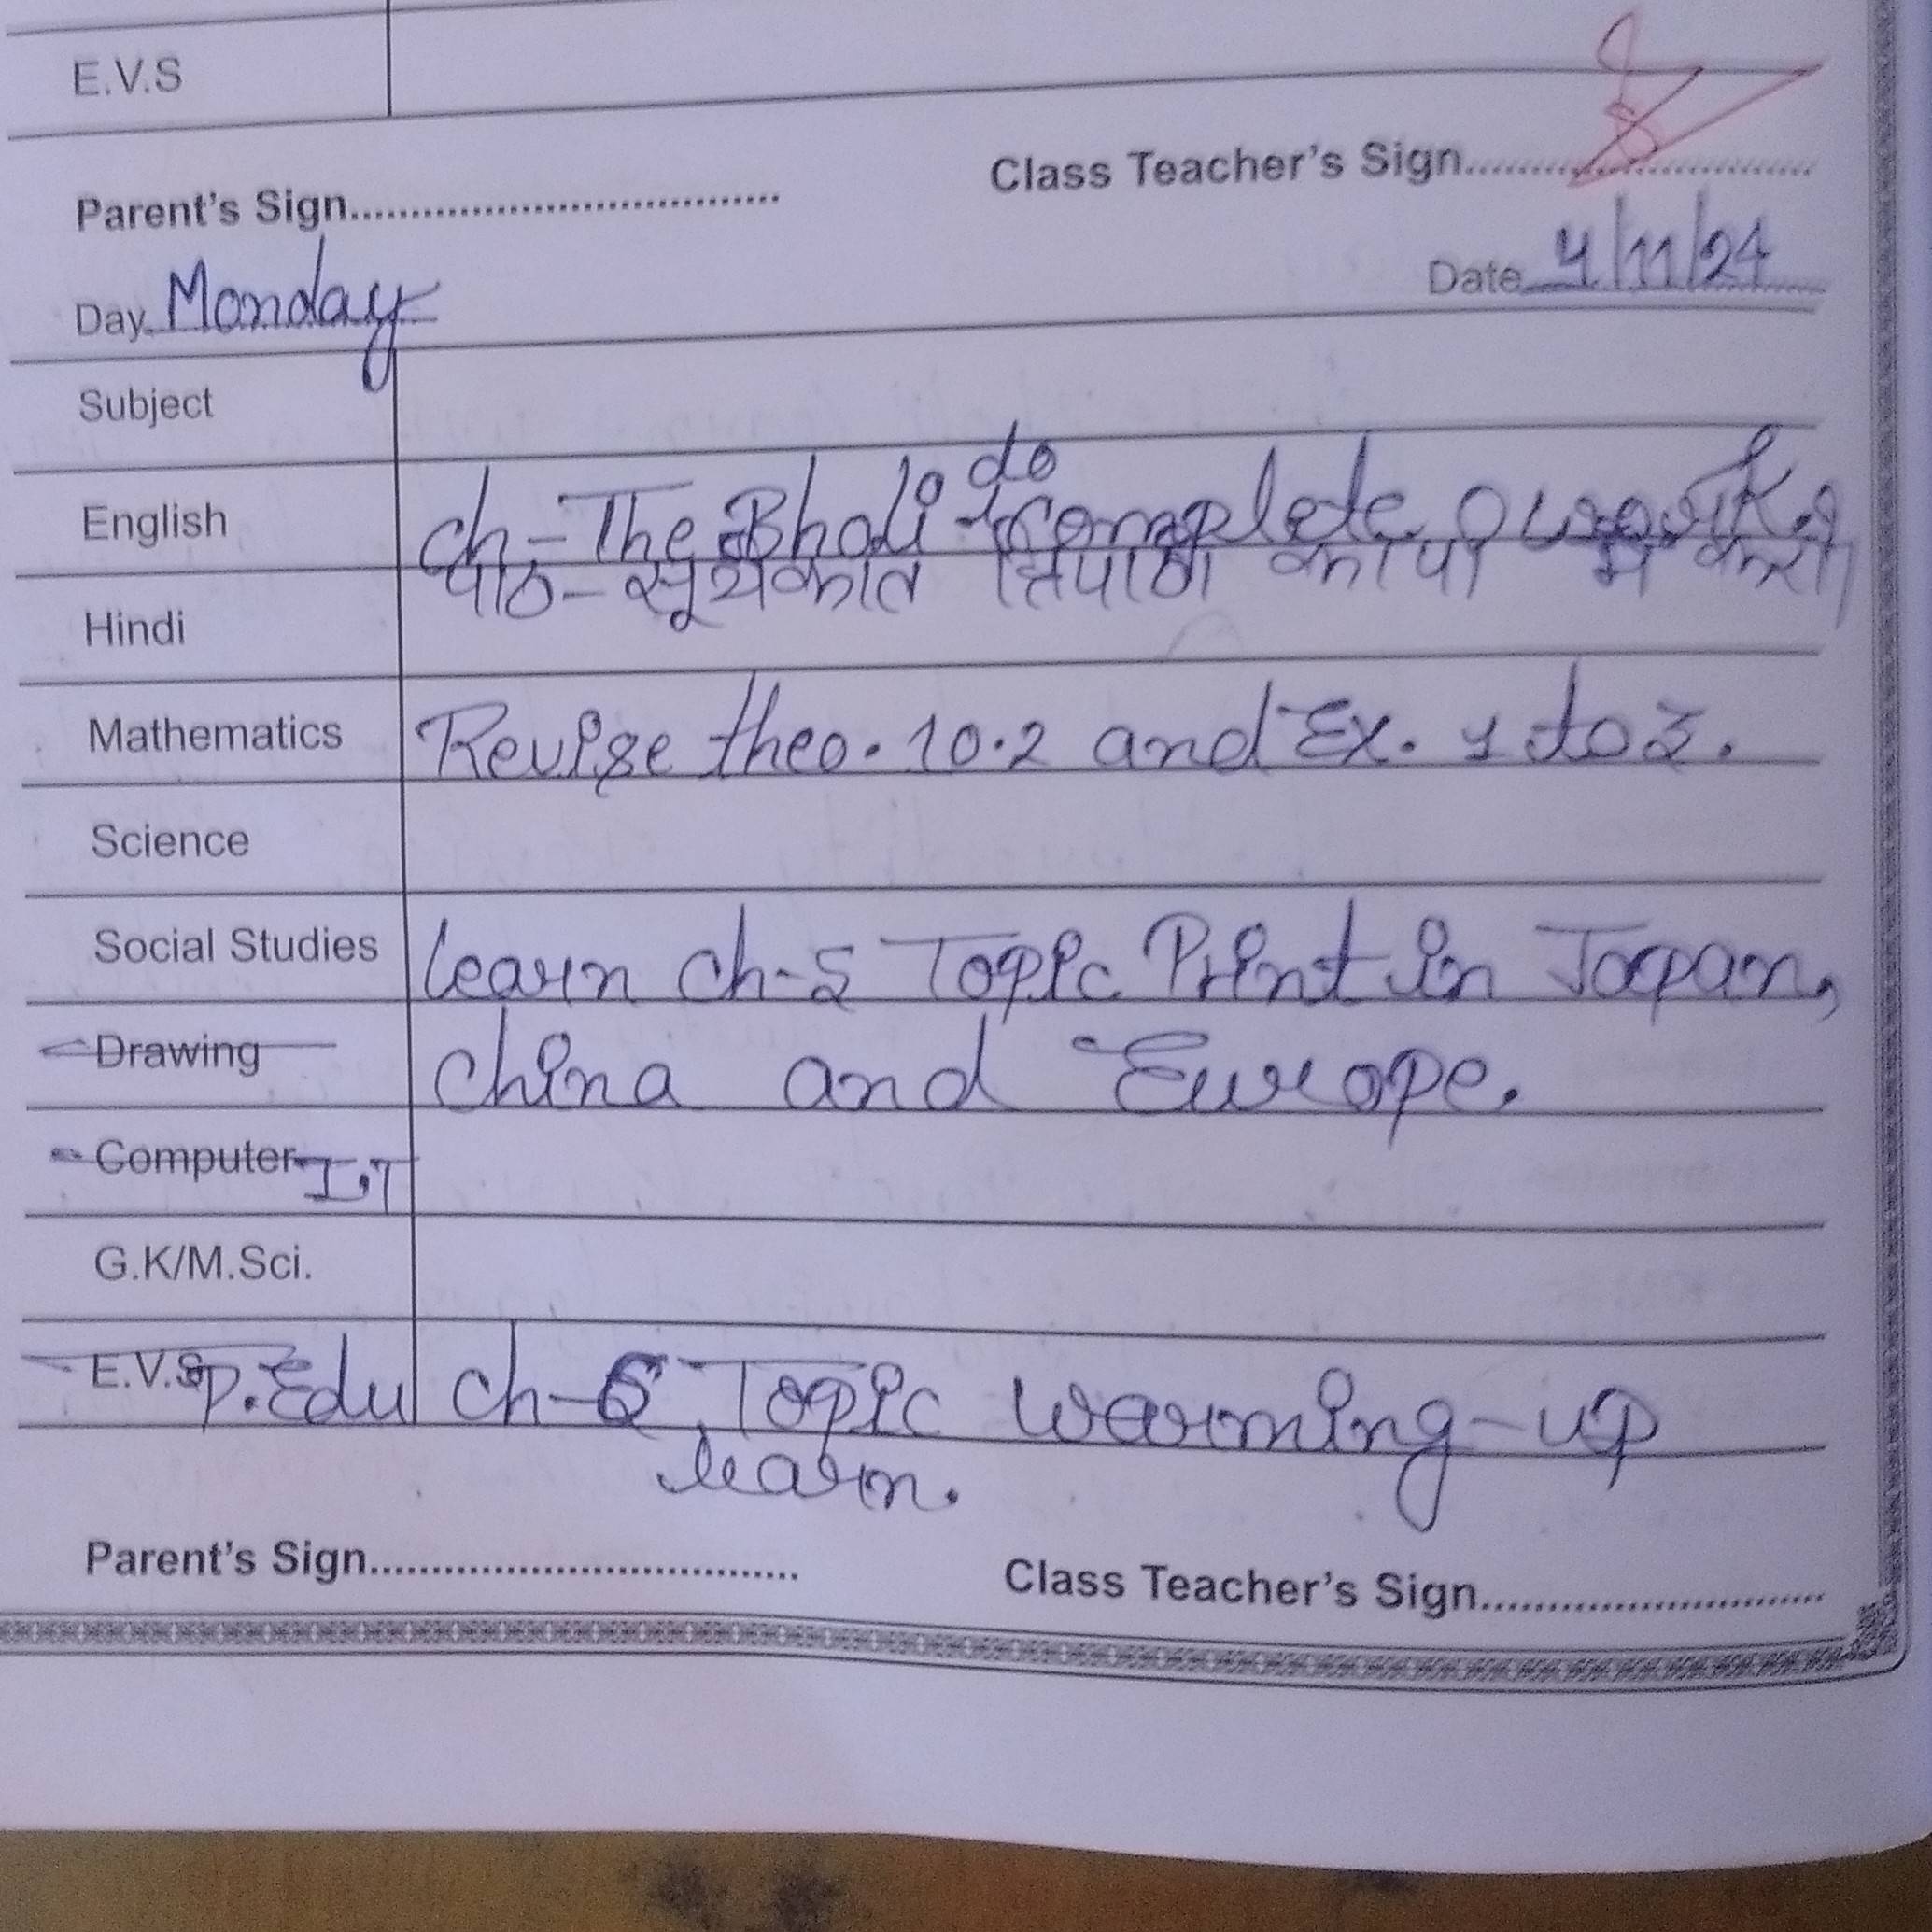 E.V.S
Parent's Sign.................................... Class Teacher's Sign..............................
Day Monday Date 4/11/24
Subject
English ch-The Bholi do complete
Hindi पाठ-सूर्यकांत त्रिपाठी कापी में करो।
Mathematics Revise theo. 10.2 and Ex. 1 to 3.
Science
Social Studies learn ch-5 Topic Print in Japan,
Drawing china and Europe.
Computer I.T
G.K/M.Sci.
E.V.S P.Edu ch-6 Topic warming-up
learn.
Parent's Sign.................................... Class Teacher's Sign..............................